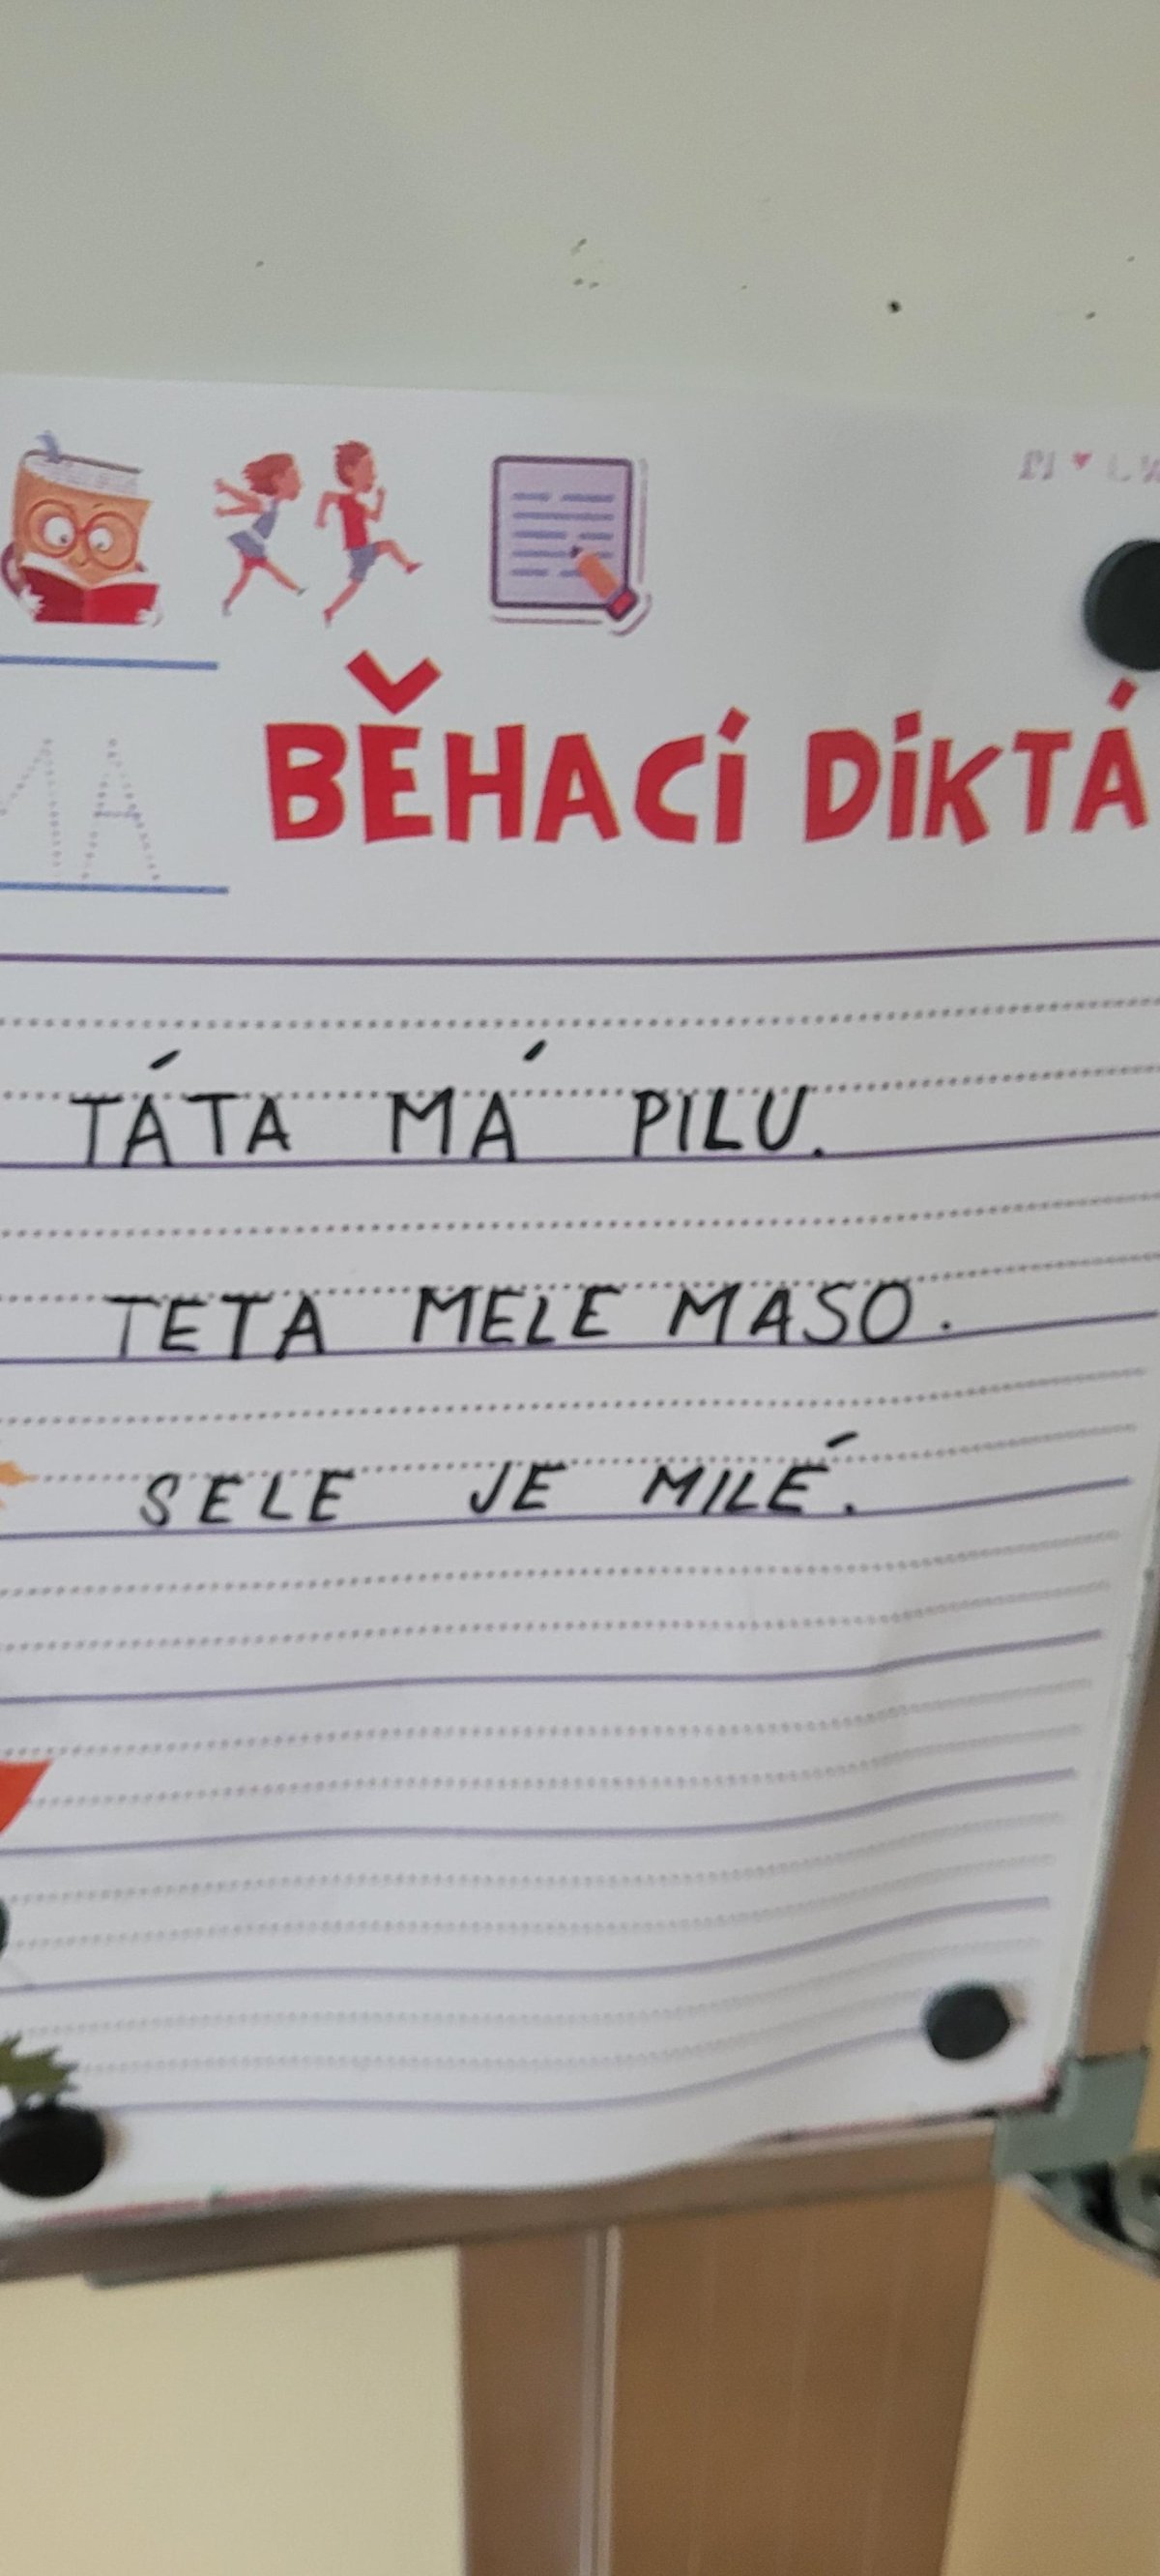 MA
BĚHACÍ DIKTÁ
TÁTA MÁ PILU.
TETA MELE MASO.
SELE JE MILÉ.